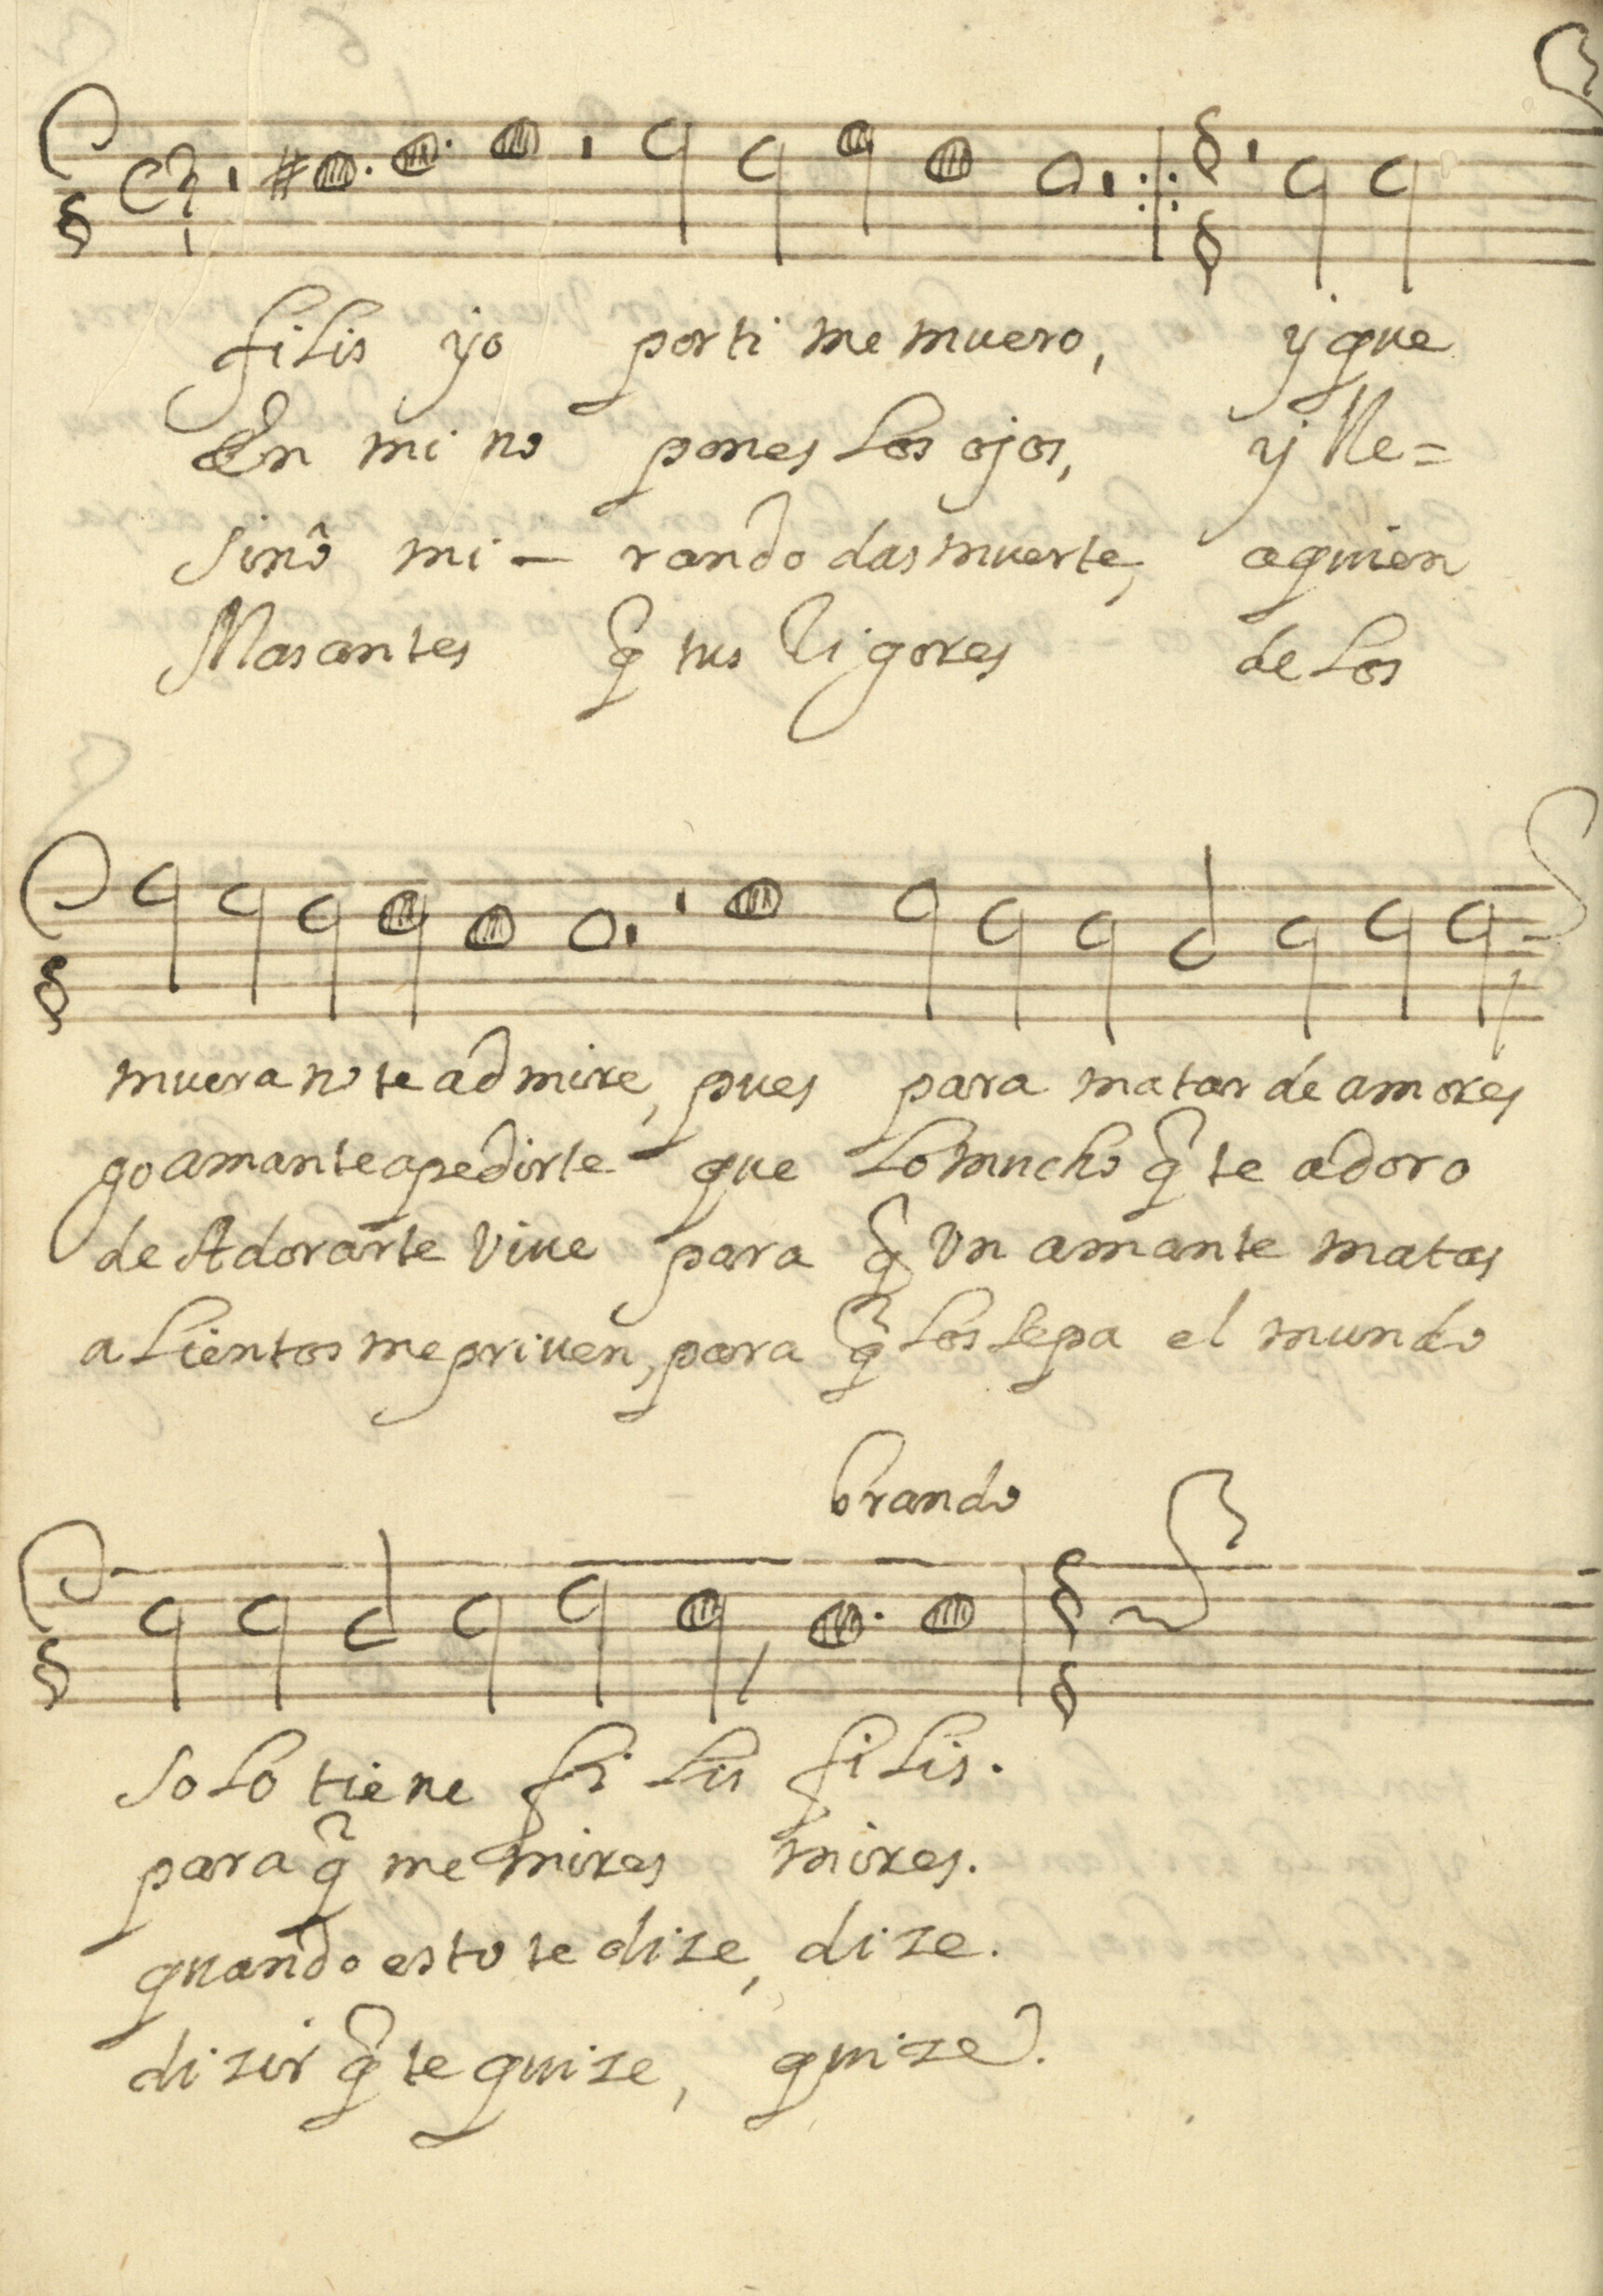 filis yo por ti me muero, y que
En mi no pones los ojos, y lle=
sinô mi - rando das muerte, a quien
Mas antes q̃ tus Rigores de los
muera no te admire, pues para matar de amores
go amante a pedirte que lo mucho q̃ te adoro
de Adorarte viue para q̃ Vn amante matas
alientos me priuen, para q̃ los sepa el mundo
brando
solo tiene filis filis.
para q̃ me mires mires.
quando esto te dize, dize.
dizir q̃ te quize, quize.